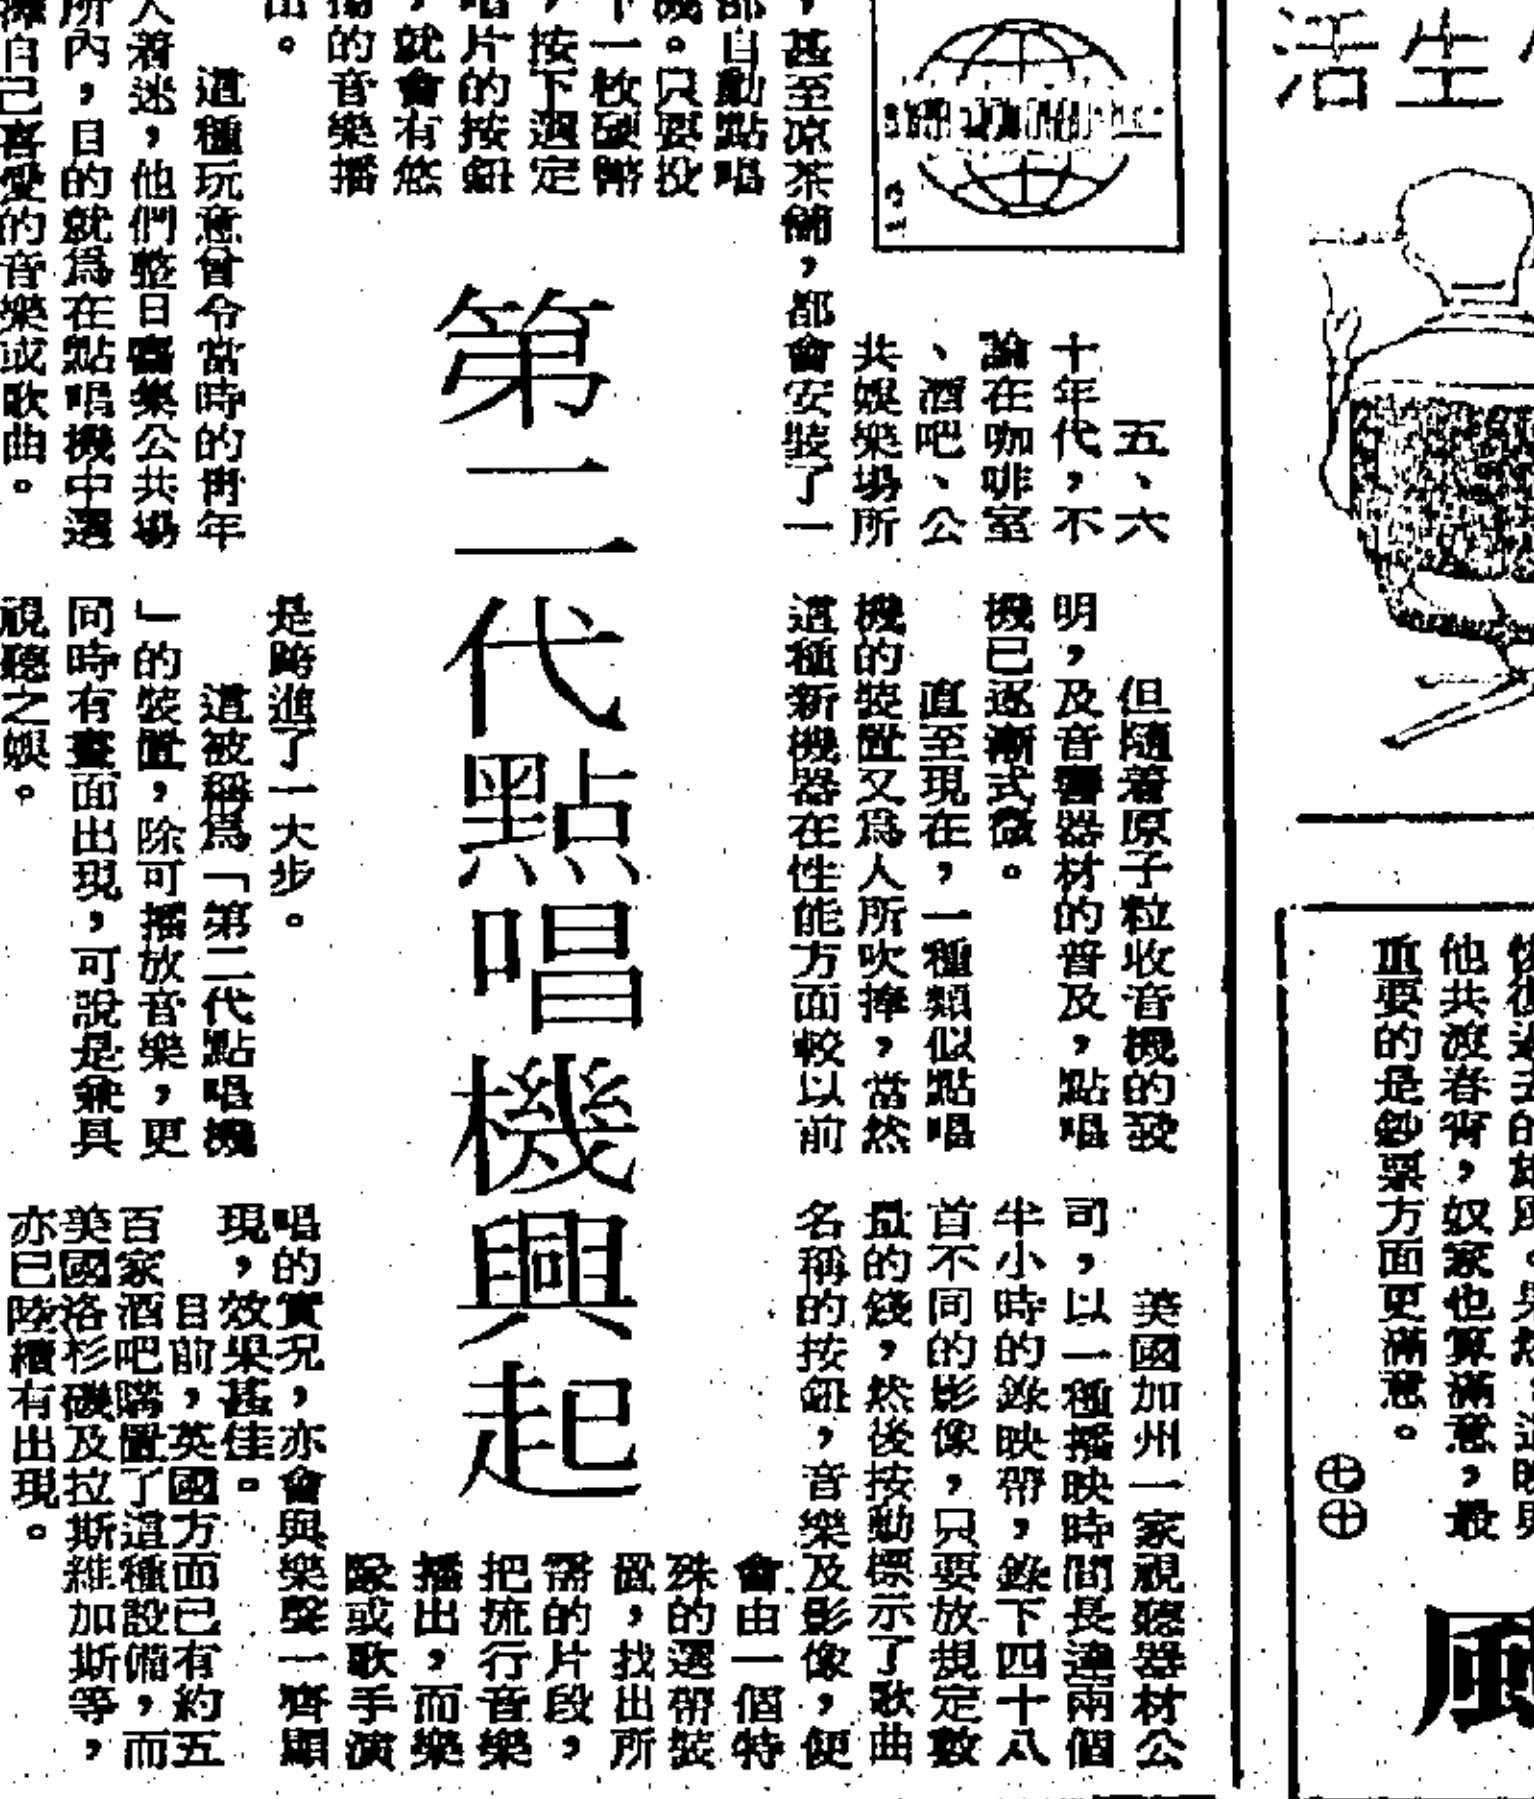 第二代點唱機興起
五、六
十年代，不
論在咖啡室
、酒吧、公
共娛樂場所
，甚至凉茶舖，都會安裝了一
部自動點唱
機。只要投
下一枚硬幣
，按下選定
唱片的按鈕
，就會有悠
揚的音樂播
出。
這種玩意曾令當時的青年
人着迷，他們整日留樂公共場
所內，目的就爲在點唱機中選
擇自己喜愛的音樂或歌曲。
但隨着原子粒收音機的發
明，及音響器材的普及，點唱
機已逐漸式微。
直至現在，一種類似點唱
機的裝置又爲人所吹捧，當然
這種新機器在性能方面較以前
是跨進了一大步。
這被稱爲「第二代點唱機
」的裝置，除可播放音樂，更
同時有畫面出現，可說是兼具
視聽之娛。
美國加州一家視聽器材公
司，以一種播映時間長達兩個
半小時的錄映帶，錄下四十八
首不同的影像，只要放規定數
量的錢，然後按動標示了歌曲
名稱的按鈕，音樂及影像，便
會由一個特
殊的選帶裝
置，找出所
需的片段，
把流行音樂
播出，而樂
隊或歌手演
唱的實況，亦會與樂聲一齊顯
現，效果甚佳。
目前，英國方面已有約五
百家酒吧購置了這種設備，而
美國洛杉磯及拉斯維加斯等，
亦已陸續有出現。
生活
他共渡春宵，奴家也算滿意，最
重要的是鈔票方面更滿意。
七十
風